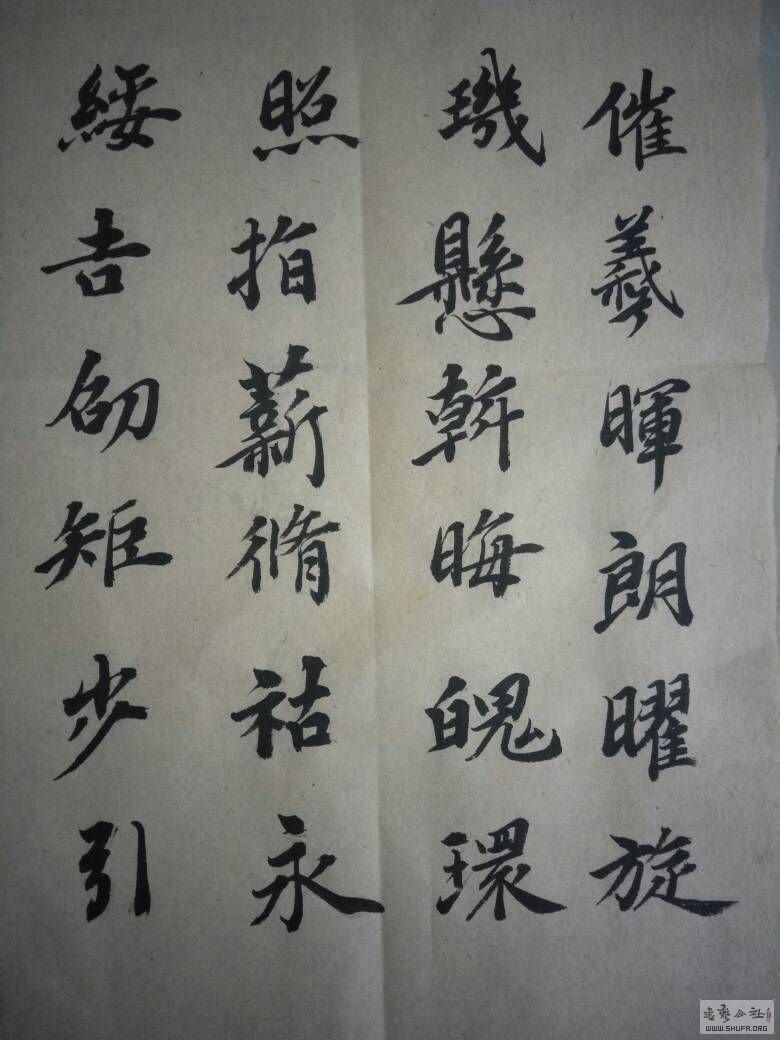 催羲暉朗曜旋
璣懸斡晦魄環
照指薪脩祜永
綏吉劭矩步引
書藝公社
WWW.SHUFA.ORG